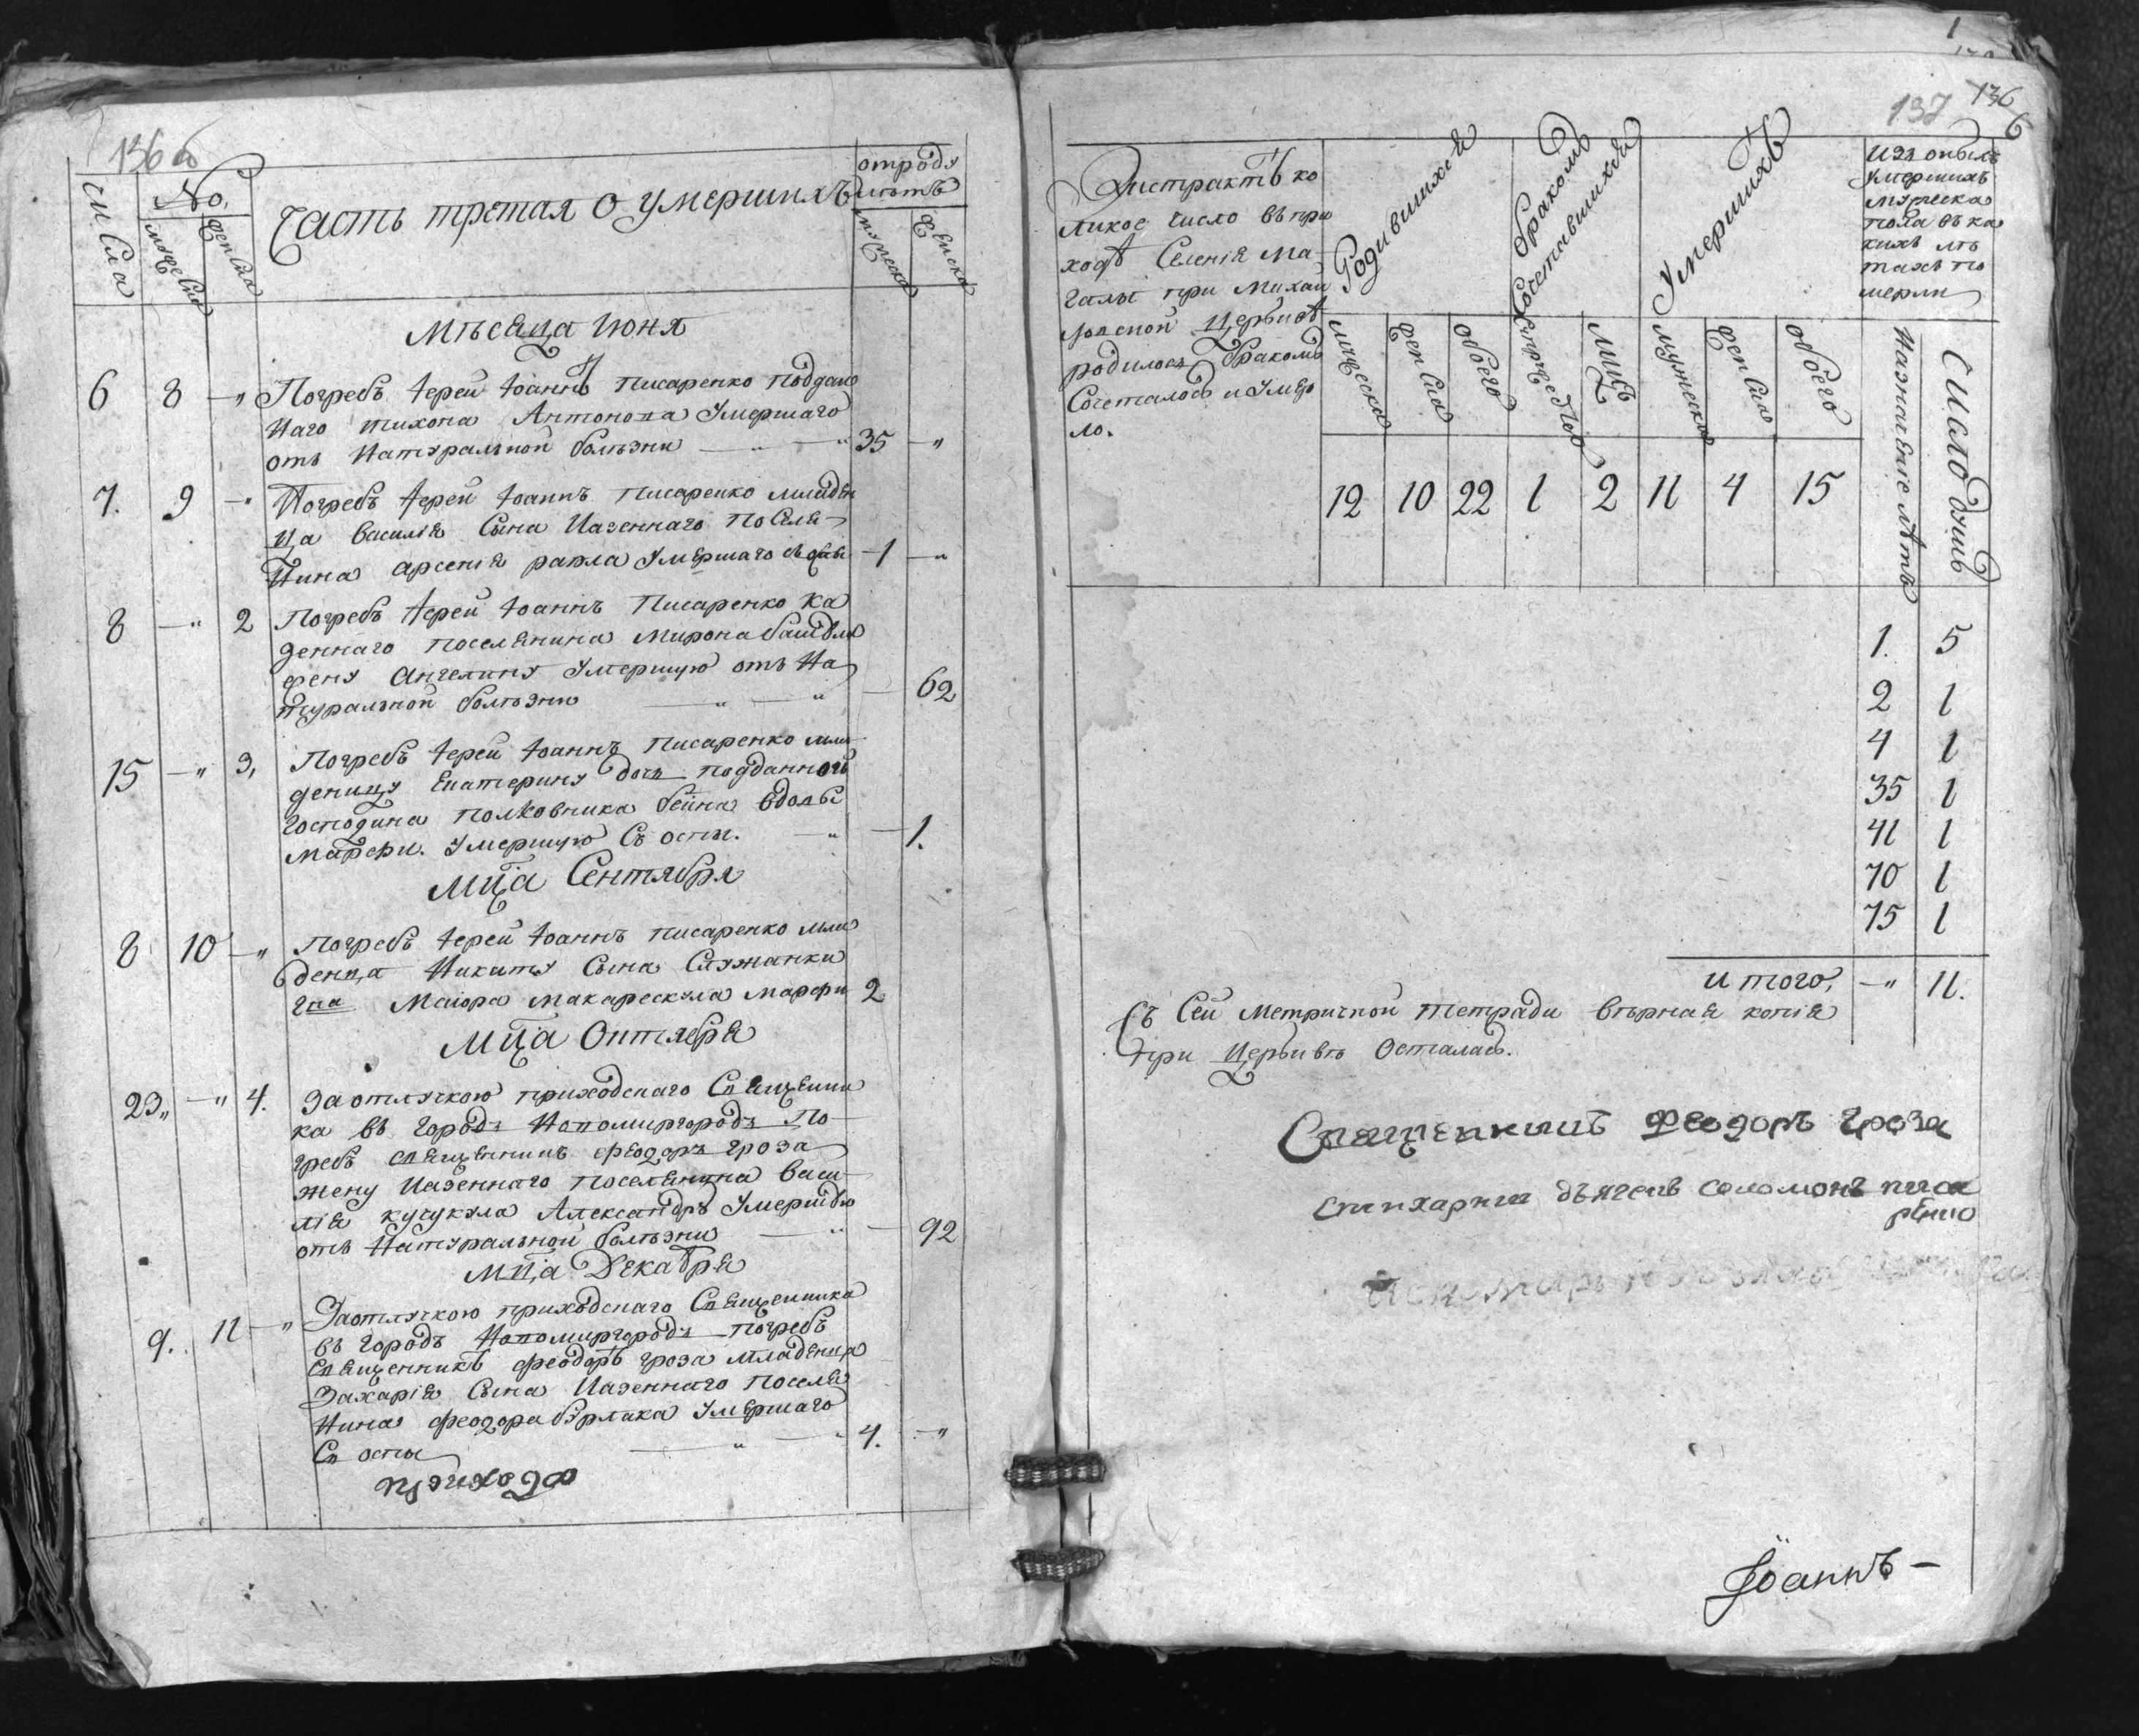 136 об
Чи
сла
№.
мужеска
женска
Часть третая о умершихъ
отроду
летъ
мужеска
женска
Месяца Июня
6 8 — „ Погребъ Iерей Iоаннъ Писаренко поддан
наго Тихона Антонова Умершаго
отъ Натуральной болѣзни — „ — „ 35 — „
7. 9 — „ Погребъ Iерей Iоаннъ Писаренко младен
ца Василiя Сына Казеннаго Поселя
нина Арсенiя Умершаго 1 — „
8 — „ 2 Погребъ Iерей Iоаннъ Писаренко Ка
зеннаго поселянина Мирона
жену Ангелину Умершую отъ На
туральной болѣзни — „ — „ — 62
15 — „ 3, Погребъ Iерей Iоаннъ Писаренко мла
деницу Екатерину дочь подданной
Господина полковника вдовы
Марфы. Умершую Съ оспы. — „ — 1.
Мца Сентября
8 10 — „ Погребъ Iерей Iоаннъ Писаренко мла
денца Никиту Сына Служанки
гна Маiора Макарескула Марфы 2
Мца Октября
23„ — „ 4. За отлучкою приходскаго Священни
ка въ городъ Новомиргородъ По
гребъ священникъ Феодоръ Гроза
жену Казеннаго поселянина Васи
лiя Кучукула Александру Умершую
отъ Натуральной болѣзни — „ — 92
Мца Декабря
9. 11 — „ За отлучкою приходскаго Священника
въ городъ Новомиргородъ погребъ
Священникъ Феодоръ Гроза младенца
Захарiя Сына Казеннаго поселя
нина Феодора Бурлака Умершаго
Съ оспы — „ — „ 4. — „
137 136
Экстрактъ ко
ликое число въ при
ходѣ Селенiя Ма
галы при Михай
ловской Церквѣ
родилось Бракомъ
Сочеталось и Умер
ло.
Родившихся
Бракомъ
Сочетавшихся
Умершихъ
Изъ оныхъ
Умершихъ
мужеска
пола въ ка
кихъ ле
тахъ по
мерли
мужеска
женска
обоего
лицъ
мужеска
женска
обоего
Название летъ
Число душъ
12 10 22 1 2 11 4 15
1. 5
2 1
4 1
35 1
41 1
70 1
75 1
Итого, — „ 11.
Съ Сей Метричной тетради верная копiя
при Церкве Осталась.
Священникъ Феодоръ Гроза
Стихарный дьячекъ Соломонъ Писа
ренко
Iоаннъ —